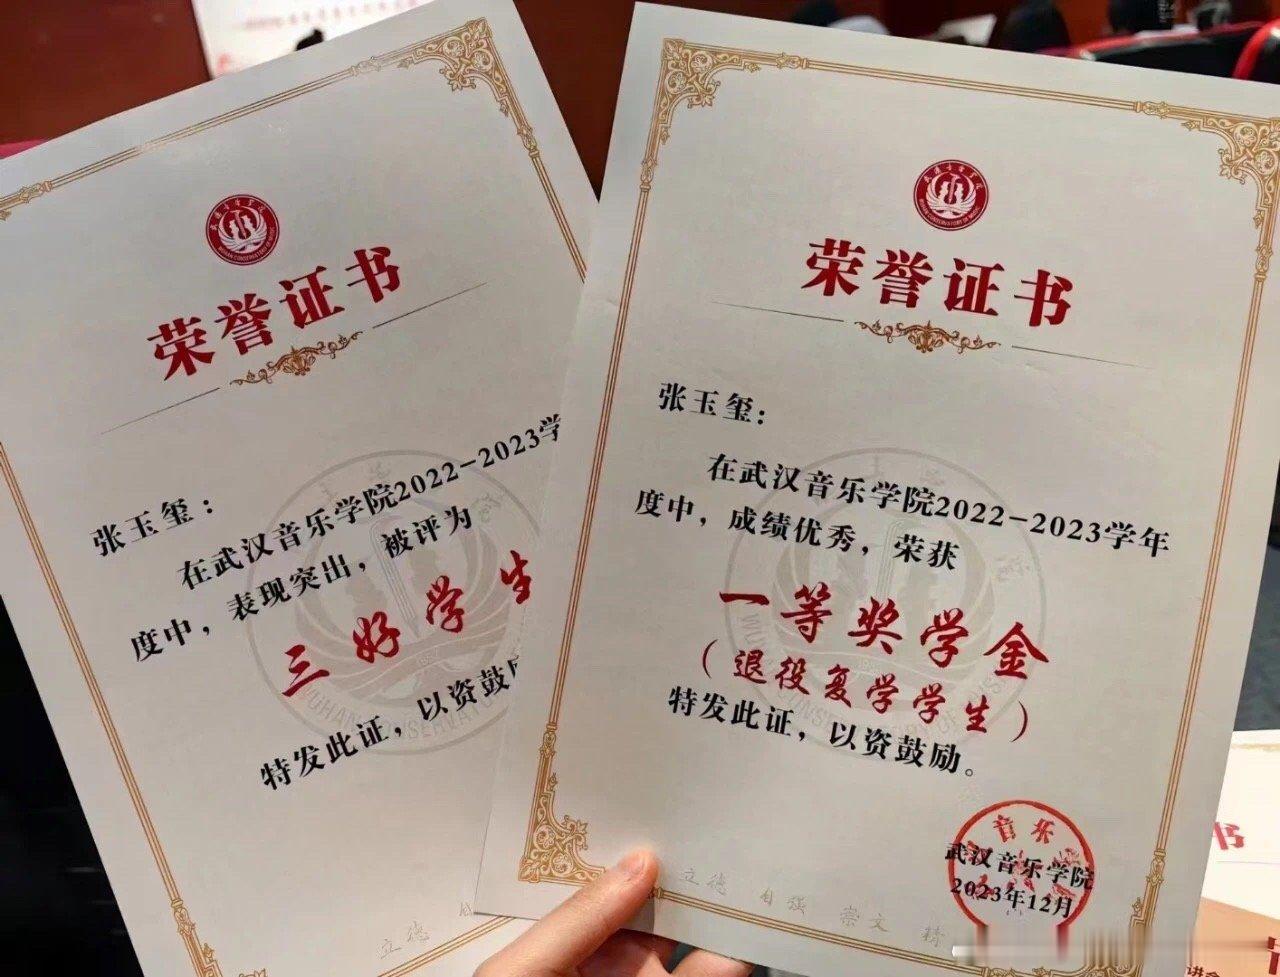 荣誉证书
张玉玺：
在武汉音乐学院2022-2023学
度中，表现突出，被评为
三好学生
特发此证，以资鼓
立德
荣誉证书
张玉玺：
在武汉音乐学院2022-2023学年
度中，成绩优秀，荣获
一等奖学金
（退役复学学生）
特发此证，以资鼓励。
音乐
武汉音乐学院
2023年12月
立德 自强 崇文 精
书